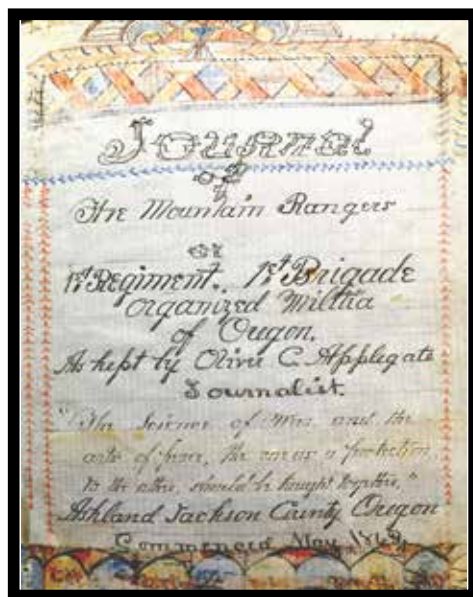 Journal
of
The Mountain Rangers
or
1st Regiment, 1st Brigade
Organized Militia
of Oregon.
As kept by Oliver C. Applegate
Journalist.
"The Science of War, and the
arts of peace, the one as a protection
to the other, should be taught together."
Ashland Jackson County Oregon
Commenced May 1862.